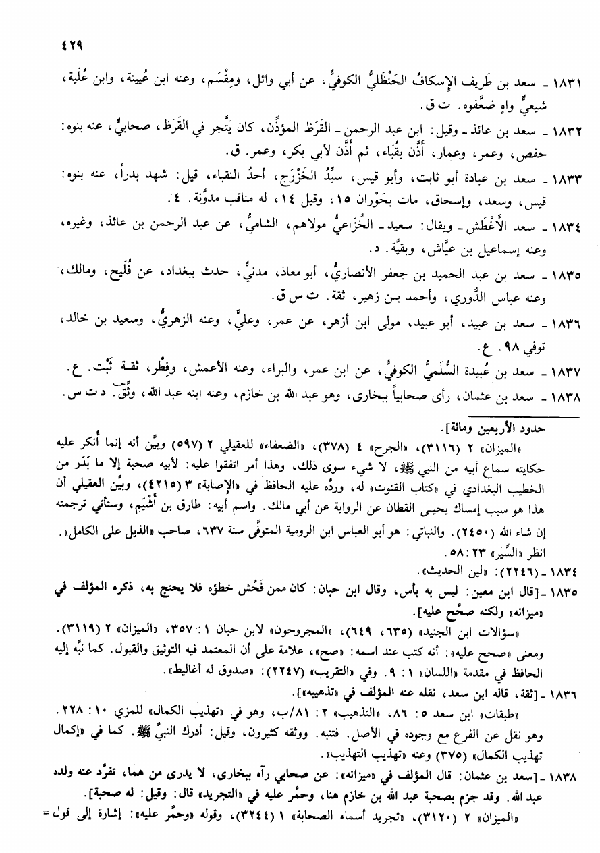 ٤٢٩
١٨٣١ - سعد بن طَريف الإِسكافُ الحَنْظَليُّ الكوفيُّ، عن أبي وائل، ومِقْسَم، وعنه ابن عُيينة، وابن عُلَية،
شيعيٌّ واهٍ ضعَّفوه. ت ق.
١٨٣٢ - سعد بن عائذ - وقيل: ابن عبد الرحمن - القَرَظ المؤذِّن، كان يتَّجر في القَرَظ، صحابيٌّ، عنه بنوه:
حفص، وعمر، وعمار، أذَّن بقُباء، ثم أذَّن لأبي بكر، وعمر. ق.
١٨٣٣ - سعد بن عبادة أبو ثابت، وأبو قيس، سيِّدُ الخَزْرج، أحدُ النقباء، قيل: شهد بدراً، عنه بنوه:
قيس، وسعد، وإسحاق، مات بحَوْران ١٥، وقيل ١٤، له مناقب مدوَّنة. ٤.
١٨٣٤ - سعد الأَغْطَش - ويقال: سعيد - الخُزاعيُّ مولاهم، الشاميُّ، عن عبد الرحمن بن عائذ، وغيره،
وعنه إسماعيل بن عيَّاش، وبقيَّة. د.
١٨٣٥ - سعد بن عبد الحميد بن جعفر الأنصاريُّ، أبو معاذ، مدنيٌّ، حدث ببغداد، عن فُلَيح، ومالك،
وعنه عباس الدُّوري، وأحمد بن زهير، ثقة. ت س ق.
١٨٣٦ - سعد بن عبيد، أبو عبيد، مولى ابن أزهر، عن عمر، وعليٍّ، وعنه الزهريُّ، وسعيد بن خالد،
توفي ٩٨. ع.
١٨٣٧ - سعد بن عُبيدة السُّلَميُّ الكوفيُّ، عن ابن عمر، والبراء، وعنه الأعمش، وفِطْر، ثقة ثَبْت. ع.
١٨٣٨ - سعد بن عثمان، رأى صحابياً ببخارى، وهو عبد الله بن خازم، وعنه ابنه عبد الله، وُثِّق. د ت س.
حدود الأربعين ومائة].
«الميزان» ٢ (٣١١٦)، «الجرح» ٤ (٣٧٨)، «الضعفاء» للعقيلي ٢ (٥٩٧) وبيَّن أنه إنما أُنكر عليه
حكايته سماع أبيه من النبي ﷺ، لا شيء سوى ذلك، وهذا أمر اتفقوا عليه: لأبيه صحبة إلا ما بَدَر من
الخطيب البغدادي في «كتاب القنوت» له، وردَّه عليه الحافظ في «الإصابة» ٣ (٤٢١٥)، وبيَّن العقيلي أن
هذا هو سبب إمساك يحيى القطان عن الرواية عن أبي مالك. واسم أبيه: طارق بن أَشْيَم، وستأتي ترجمته
إن شاء الله (٢٤٥٠). والنباتي: هو أبو العباس ابن الرومية المتوفَّى سنة ٦٣٧، صاحب «الذيل على الكامل».
انظر «السِّيَر» ٢٣: ٥٨.
١٨٣٤ - (٢٢٤٦): «لين الحديث».
١٨٣٥ - [قال ابن معين: ليس به بأس، وقال ابن حبان: كان ممن فَحُش خطؤه فلا يحتج به، ذكره المؤلف في
«ميزانه» ولكنه صحَّح عليه].
«سؤالات ابن الجنيد» (٦٣٥، ٦٤٩)، «المجروحون» لابن حبان ١: ٣٥٧، «الميزان» ٢ (٣١١٩).
ومعنى «صحح عليه»: أنه كتب عند اسمه: «صح»، علامة على أن المعتمد فيه التوثيق والقبول. كما نبَّه إليه
الحافظ في مقدمة «اللسان» ١: ٩. وفي «التقريب» (٢٢٤٧): «صدوق له أغاليط».
١٨٣٦ - [ثقة، قاله ابن سعد، نقله عنه المؤلف في «تذهيبه»].
«طبقات» ابن سعد ٥: ٨٦، «التذهيب» ٢: ٨١/ب، وهو في «تهذيب الكمال» للمزي ١٠: ٢٢٨.
وهو نقل عن الفرع مع وجوده في الأصل. فتنبه. ووثقه كثيرون، وقيل: أدرك النبيَّ ﷺ. كما في «إكمال
تهذيب الكمال» (٣٧٥) وعنه «تهذيب التهذيب».
١٨٣٨ - [سعد بن عثمان: قال المؤلف في «ميزانه»: عن صحابي رآه ببخارى، لا يدرى من هما، تفرَّد عنه ولده
عبد الله. وقد جزم بصحبة عبد الله بن خازم هنا، وحمَّر عليه في «التجريد» قال: وقيل: له صحبة].
«الميزان» ٢ (٣١٢٠)، «تجريد أسماء الصحابة» ١ (٣٢٤٤)، وقوله «وحمَّر عليه»: إشارة إلى قول=